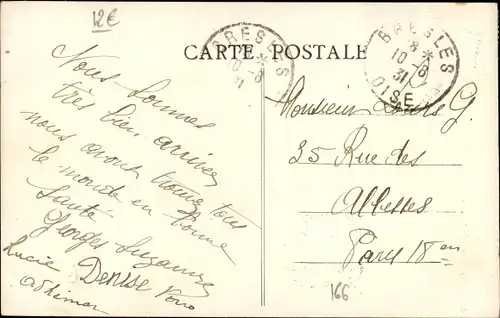 12€
BRESLES
10-8
31
CARTE POSTALE
BRESLES
8 *
10-8
31
OISE
Nous sommes
très bien arrivés
nous avons trouvé tous
le monde en bonne
santé
Georges Suzanne
Lucie Denise
Monsieur G.
35 Rue des
Abbesses
Paris 18 em
166